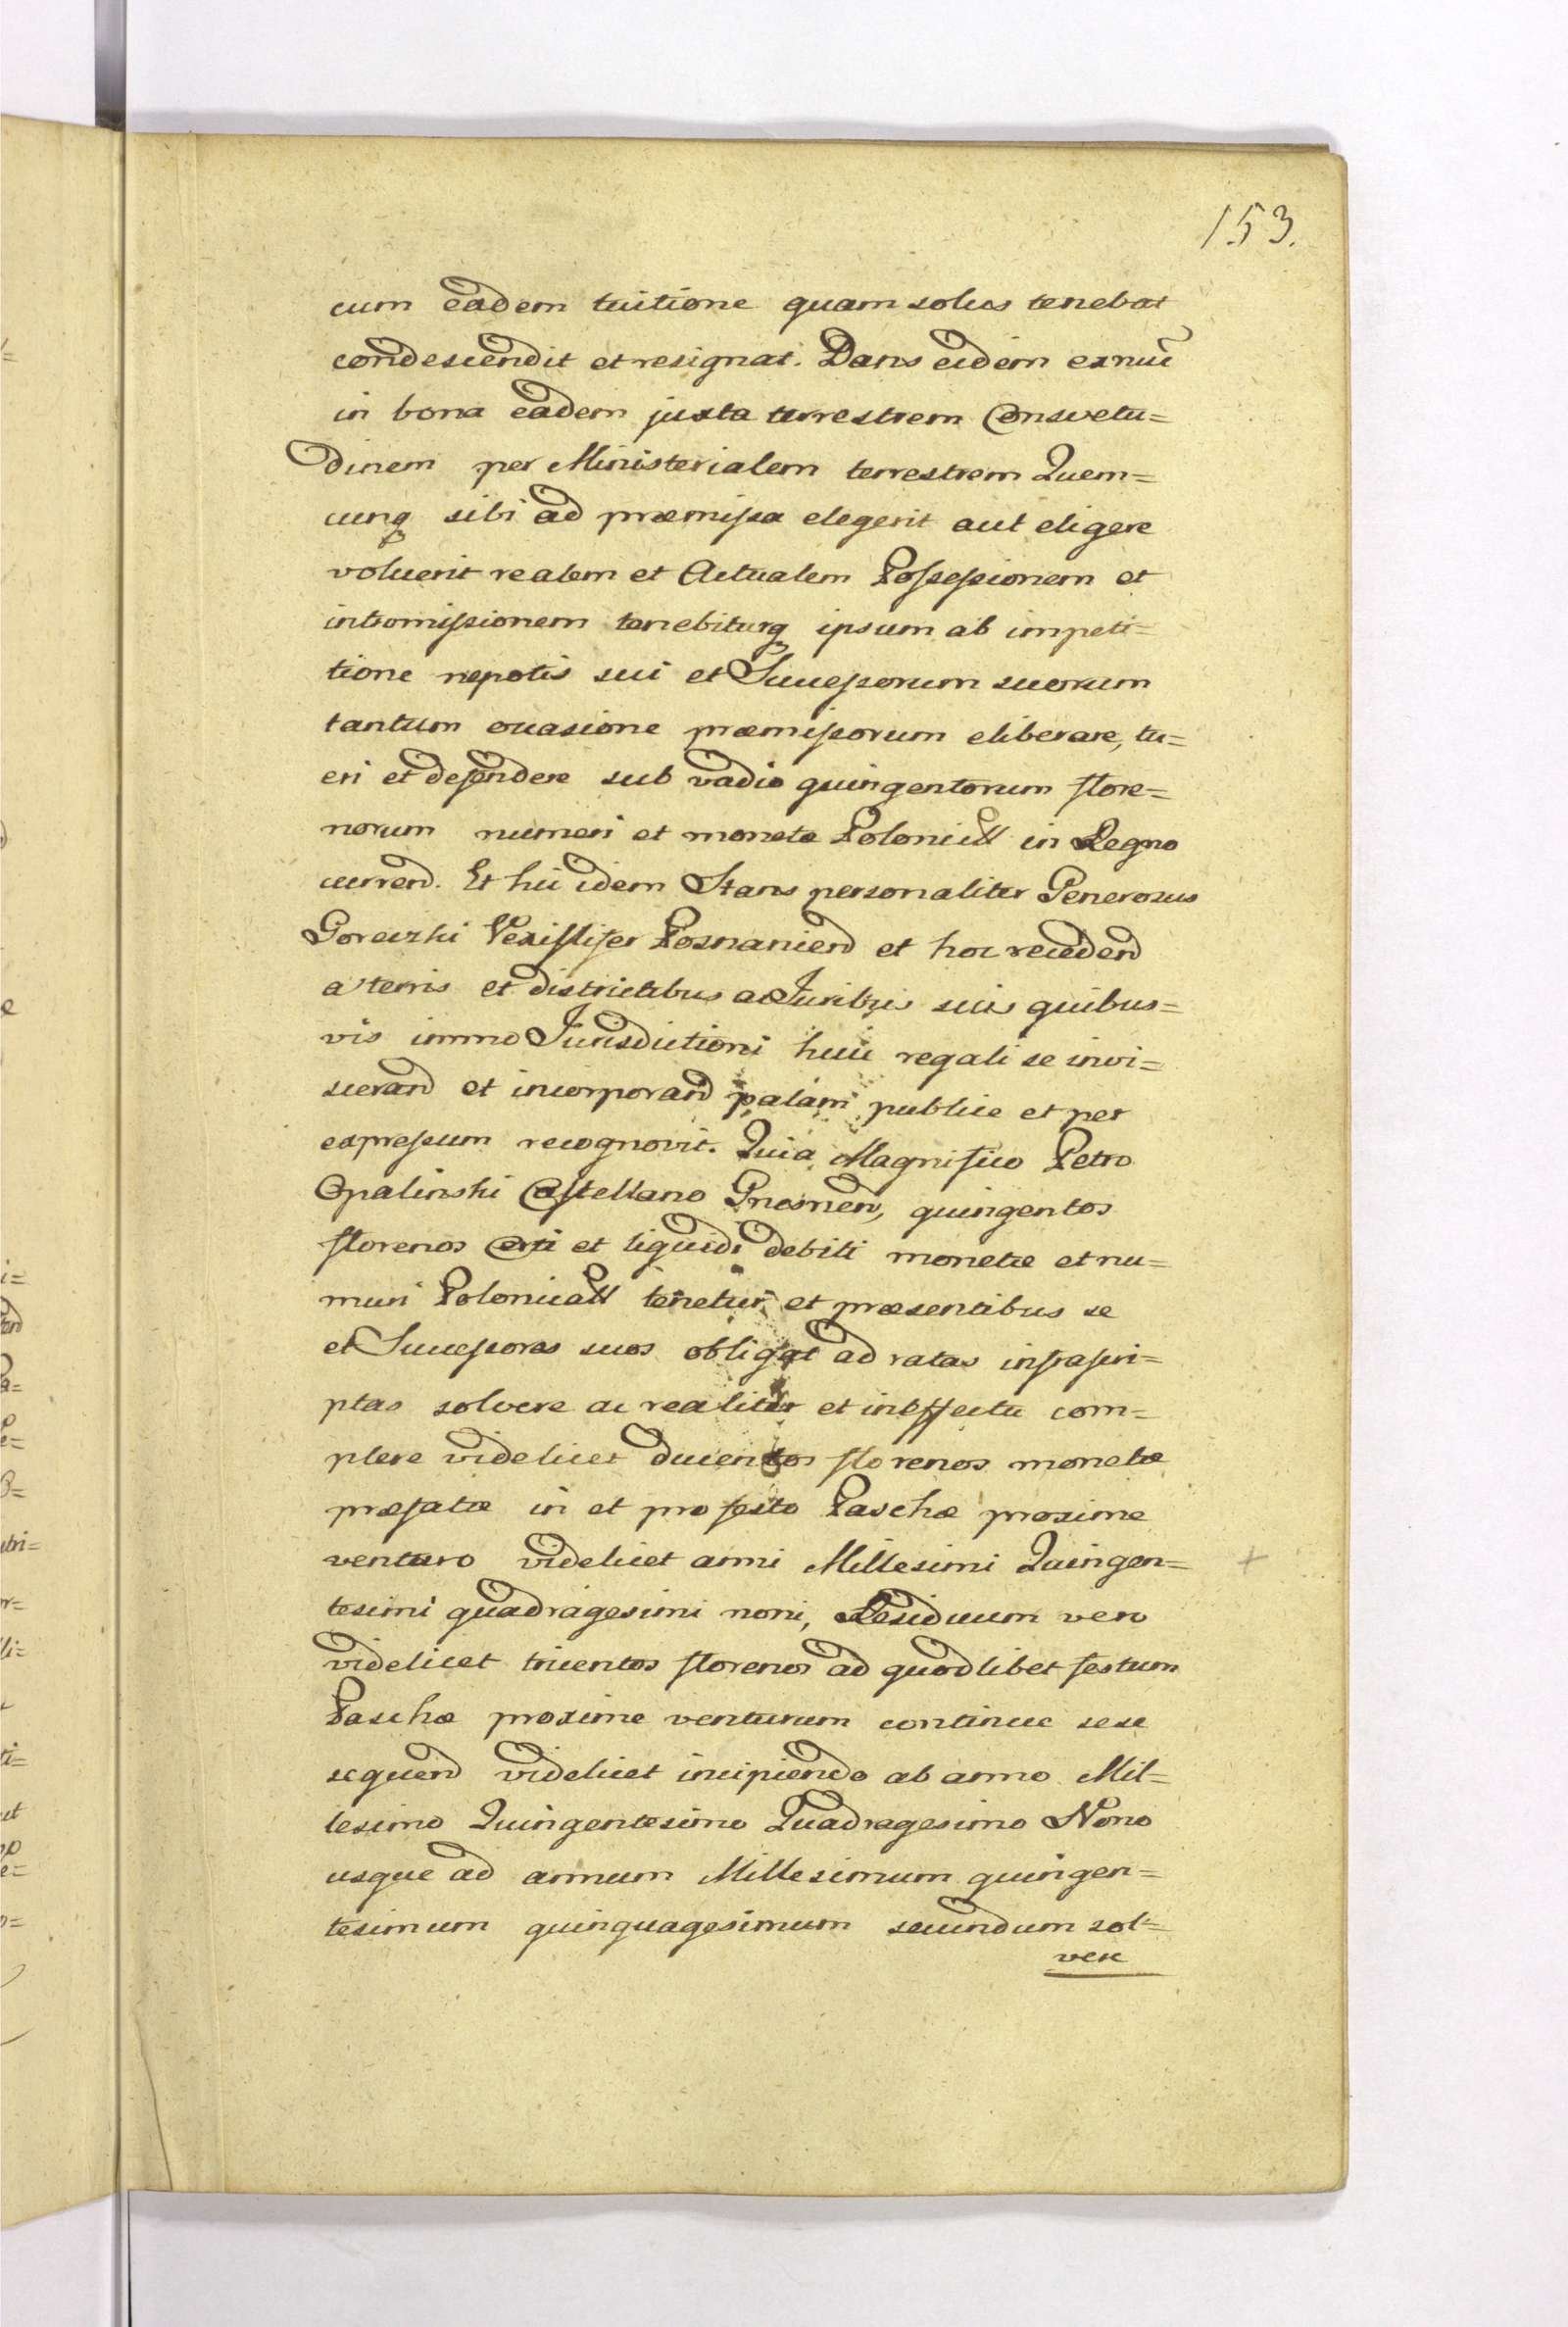 153.
cum eadem tuitione quam solus tenebat
condescendit et resignat. Dans eidem exnuc̃
in bona eadem juxta terrestrem Consvetu=
dinem per Ministerialem terrestrem Quem=
cunq sibi ad præmissa elegerit aut eligere
voluerit realem et Actualem Possessionem et
intromissionem tenebiturq ipsum ab impeti=
tione nepotis sui et Successorum suorum
tantum occasione præmissorum eliberare, tu=
eri et defendere sub vadio quingentorum flore=
norum numeri et monetæ Polonicall in Regno
currend. Et hic idem Stans personaliter Generosus
Goreczki Vexillifer Posnaniend et hoc recedend
a terris et districtibus ac Juribus suis quibus=
vis immo Jurisdictioni huic regali se invi=
scerand et incorporand palam publice et per
expressum recognovit. Quia Magnifico Petro
Opalinski Castellano Gnesnen, quingentos
florenos certi et liquidi debiti monetæ et nu=
meri Polonicall tenetur, et præsentibus se
et Successores suos obligat ad ratas infrascri=
ptas solvere ac realiter et in effectu com=
plere videlicet ducentos florenos monetæ
præfatæ in et pro festo Paschæ proxime
venturo videlicet anni Millesimi Quingen=
tesimi quadragesimi noni, Residuum vero
videlicet tricentos florenos ad quodlibet festum
Paschæ proxime venturum continue sese
sequend videlicet incipiendo ab anno Mil=
lesimo Quingentesimo Quadragesimo Nono
usque ad annum Millesimum quingen=
tesimum quinquagesimum secundum sol=
vere